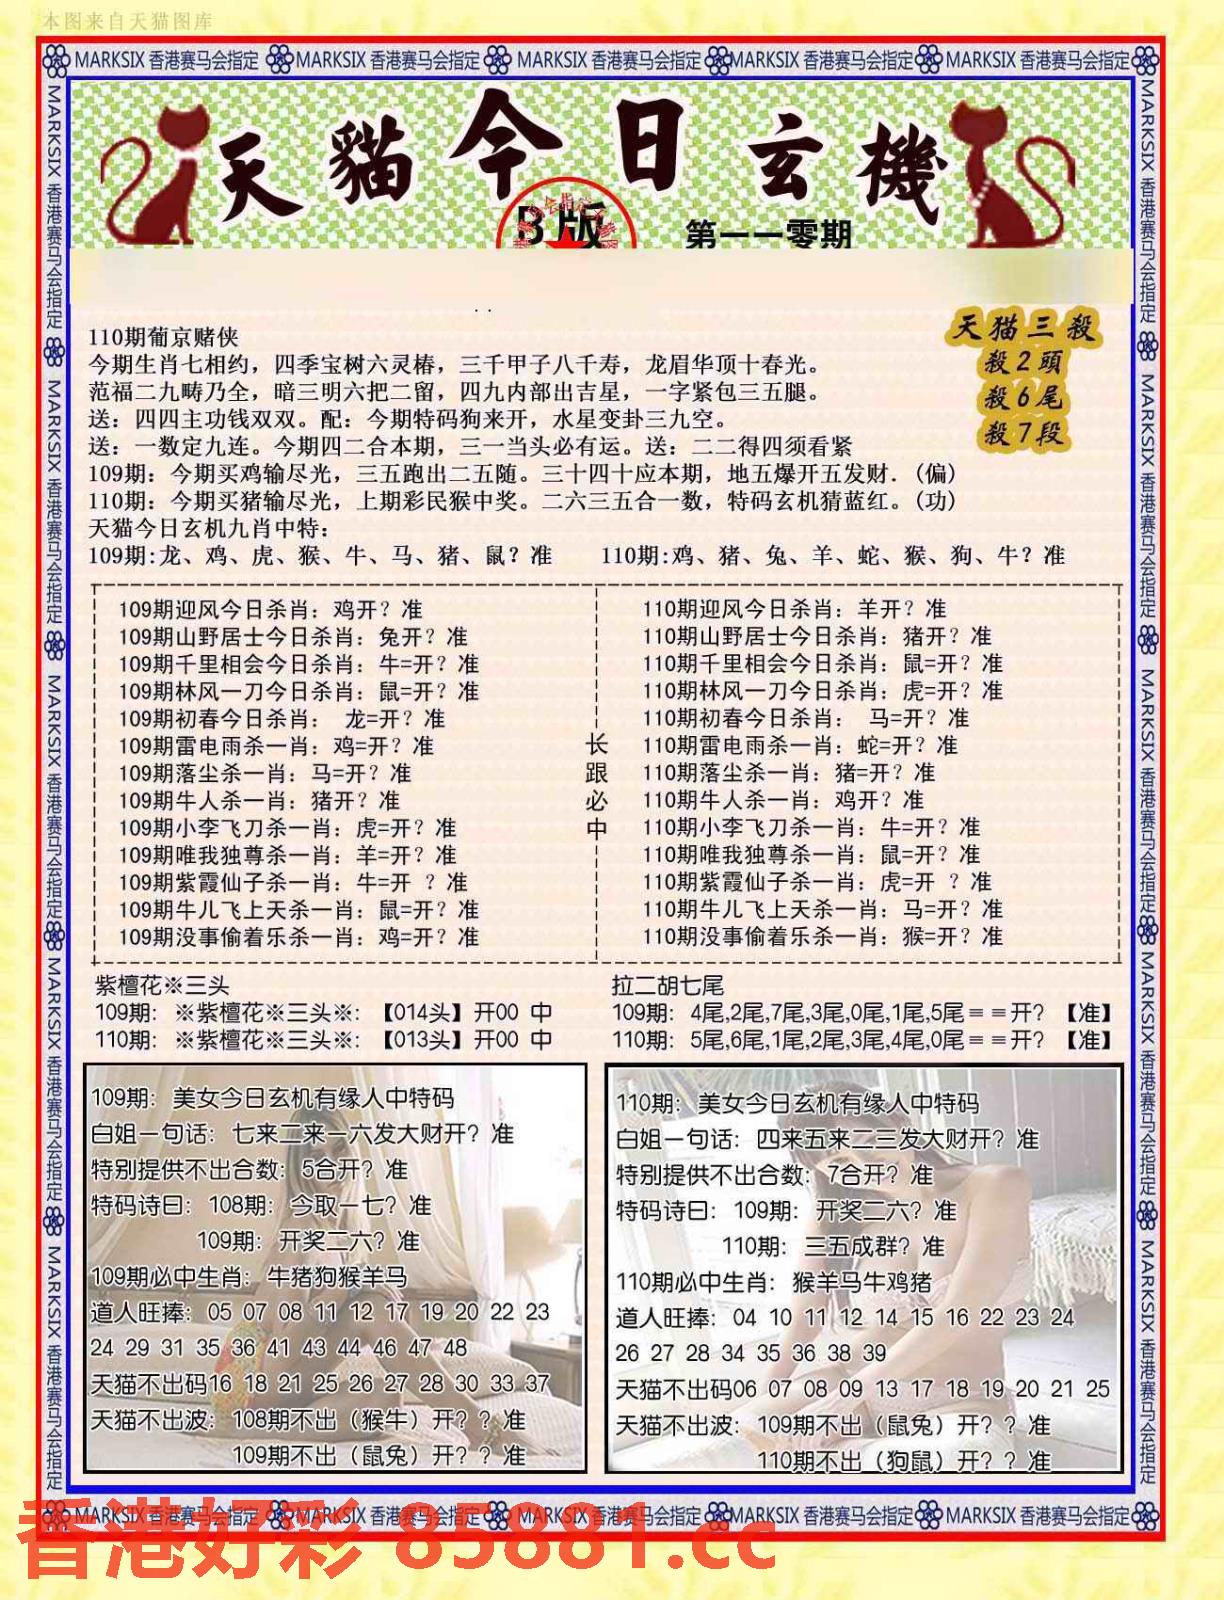 本图来自天猫图库
MARKSIX 香港赛马会指定 MARKSIX 香港赛马会指定 MARKSIX 香港赛马会指定 MARKSIX 香港赛马会指定 MARKSIX 香港赛马会指定
MARKSIX 香港赛马会指定 MARKSIX 香港赛马会指定 MARKSIX 香港赛马会指定 MARKSIX 香港赛马会指定 MARKSIX 香港赛马会指定
天貓今日玄機
B版
第一一零期
110期葡京赌侠
今期生肖七相约，四季宝树六灵椿，三千甲子八千寿，龙眉华顶十春光。
范福二九畴乃全，暗三明六把二留，四九内部出吉星，一字紧包三五腿。
送：四四主功钱双双。配：今期特码狗来开，水星变卦三九空。
送：一数定九连。今期四二合本期，三一当头必有运。送：二二得四须看紧
109期：今期买鸡输尽光，三五跑出二五随。三十四十应本期，地五爆开五发财．(偏)
110期：今期买猪输尽光，上期彩民猴中奖。二六三五合一数，特码玄机猜蓝红。(功)
天猫三殺
殺2頭
殺6尾
殺7段
天猫今日玄机九肖中特：
109期:龙、鸡、虎、猴、牛、马、猪、鼠？准 110期:鸡、猪、兔、羊、蛇、猴、狗、牛？准
109期迎风今日杀肖：鸡开？准
109期山野居士今日杀肖：兔开？准
109期千里相会今日杀肖：牛=开？准
109期林风一刀今日杀肖：鼠=开？准
109期初春今日杀肖： 龙=开？准
109期雷电雨杀一肖：鸡=开？准
109期落尘杀一肖：马=开？准
109期牛人杀一肖：猪开？准
109期小李飞刀杀一肖：虎=开？准
109期唯我独尊杀一肖：羊=开？准
109期紫霞仙子杀一肖：牛=开 ？准
109期牛儿飞上天杀一肖：鼠=开？准
109期没事偷着乐杀一肖：鸡=开？准
长跟必中
110期迎风今日杀肖：羊开？准
110期山野居士今日杀肖：猪开？准
110期千里相会今日杀肖：鼠=开？准
110期林风一刀今日杀肖：虎=开？准
110期初春今日杀肖： 马=开？准
110期雷电雨杀一肖：蛇=开？准
110期落尘杀一肖：猪=开？准
110期牛人杀一肖：鸡开？准
110期小李飞刀杀一肖：牛=开？准
110期唯我独尊杀一肖：鼠=开？准
110期紫霞仙子杀一肖：虎=开 ？准
110期牛儿飞上天杀一肖：马=开？准
110期没事偷着乐杀一肖：猴=开？准
紫檀花※三头
109期：※紫檀花※三头※：【014头】开00 中
110期：※紫檀花※三头※：【013头】开00 中
拉二胡七尾
109期： 4尾,2尾,7尾,3尾,0尾,1尾,5尾＝＝开？【准】
110期： 5尾,6尾,1尾,2尾,3尾,4尾,0尾＝＝开？【准】
109期：美女今日玄机有缘人中特码
白姐一句话：七来二来一六发大财开？准
特别提供不出合数：5合开？准
特码诗曰：108期：今取一七？准
109期：开奖二六？准
109期必中生肖：牛猪狗猴羊马
道人旺捧：05 07 08 11 12 17 19 20 22 23
24 29 31 35 36 41 43 44 46 47 48
天猫不出码16 18 21 25 26 27 28 30 33 37
天猫不出波：108期不出（猴牛）开？？准
109期不出（鼠兔）开？？准
110期：美女今日玄机有缘人中特码
白姐一句话：四来五来二三发大财开？准
特别提供不出合数：7合开？准
特码诗曰：109期：开奖二六？准
110期：三五成群？准
110期必中生肖：猴羊马牛鸡猪
道人旺捧：04 10 11 12 14 15 16 22 23 24
26 27 28 34 35 36 38 39
天猫不出码06 07 08 09 13 17 18 19 20 21 25
天猫不出波：109期不出（鼠兔）开？？准
110期不出（狗鼠）开？？准
MARKSIX 香港赛马会指定 MARKSIX 香港赛马会指定 MARKSIX 香港赛马会指定 MARKSIX 香港赛马会指定 MARKSIX 香港赛马会指定
MARKSIX 香港赛马会指定 MARKSIX 香港赛马会指定 MARKSIX 香港赛马会指定 MARKSIX 香港赛马会指定 MARKSIX 香港赛马会指定
香港好彩 85881.cc